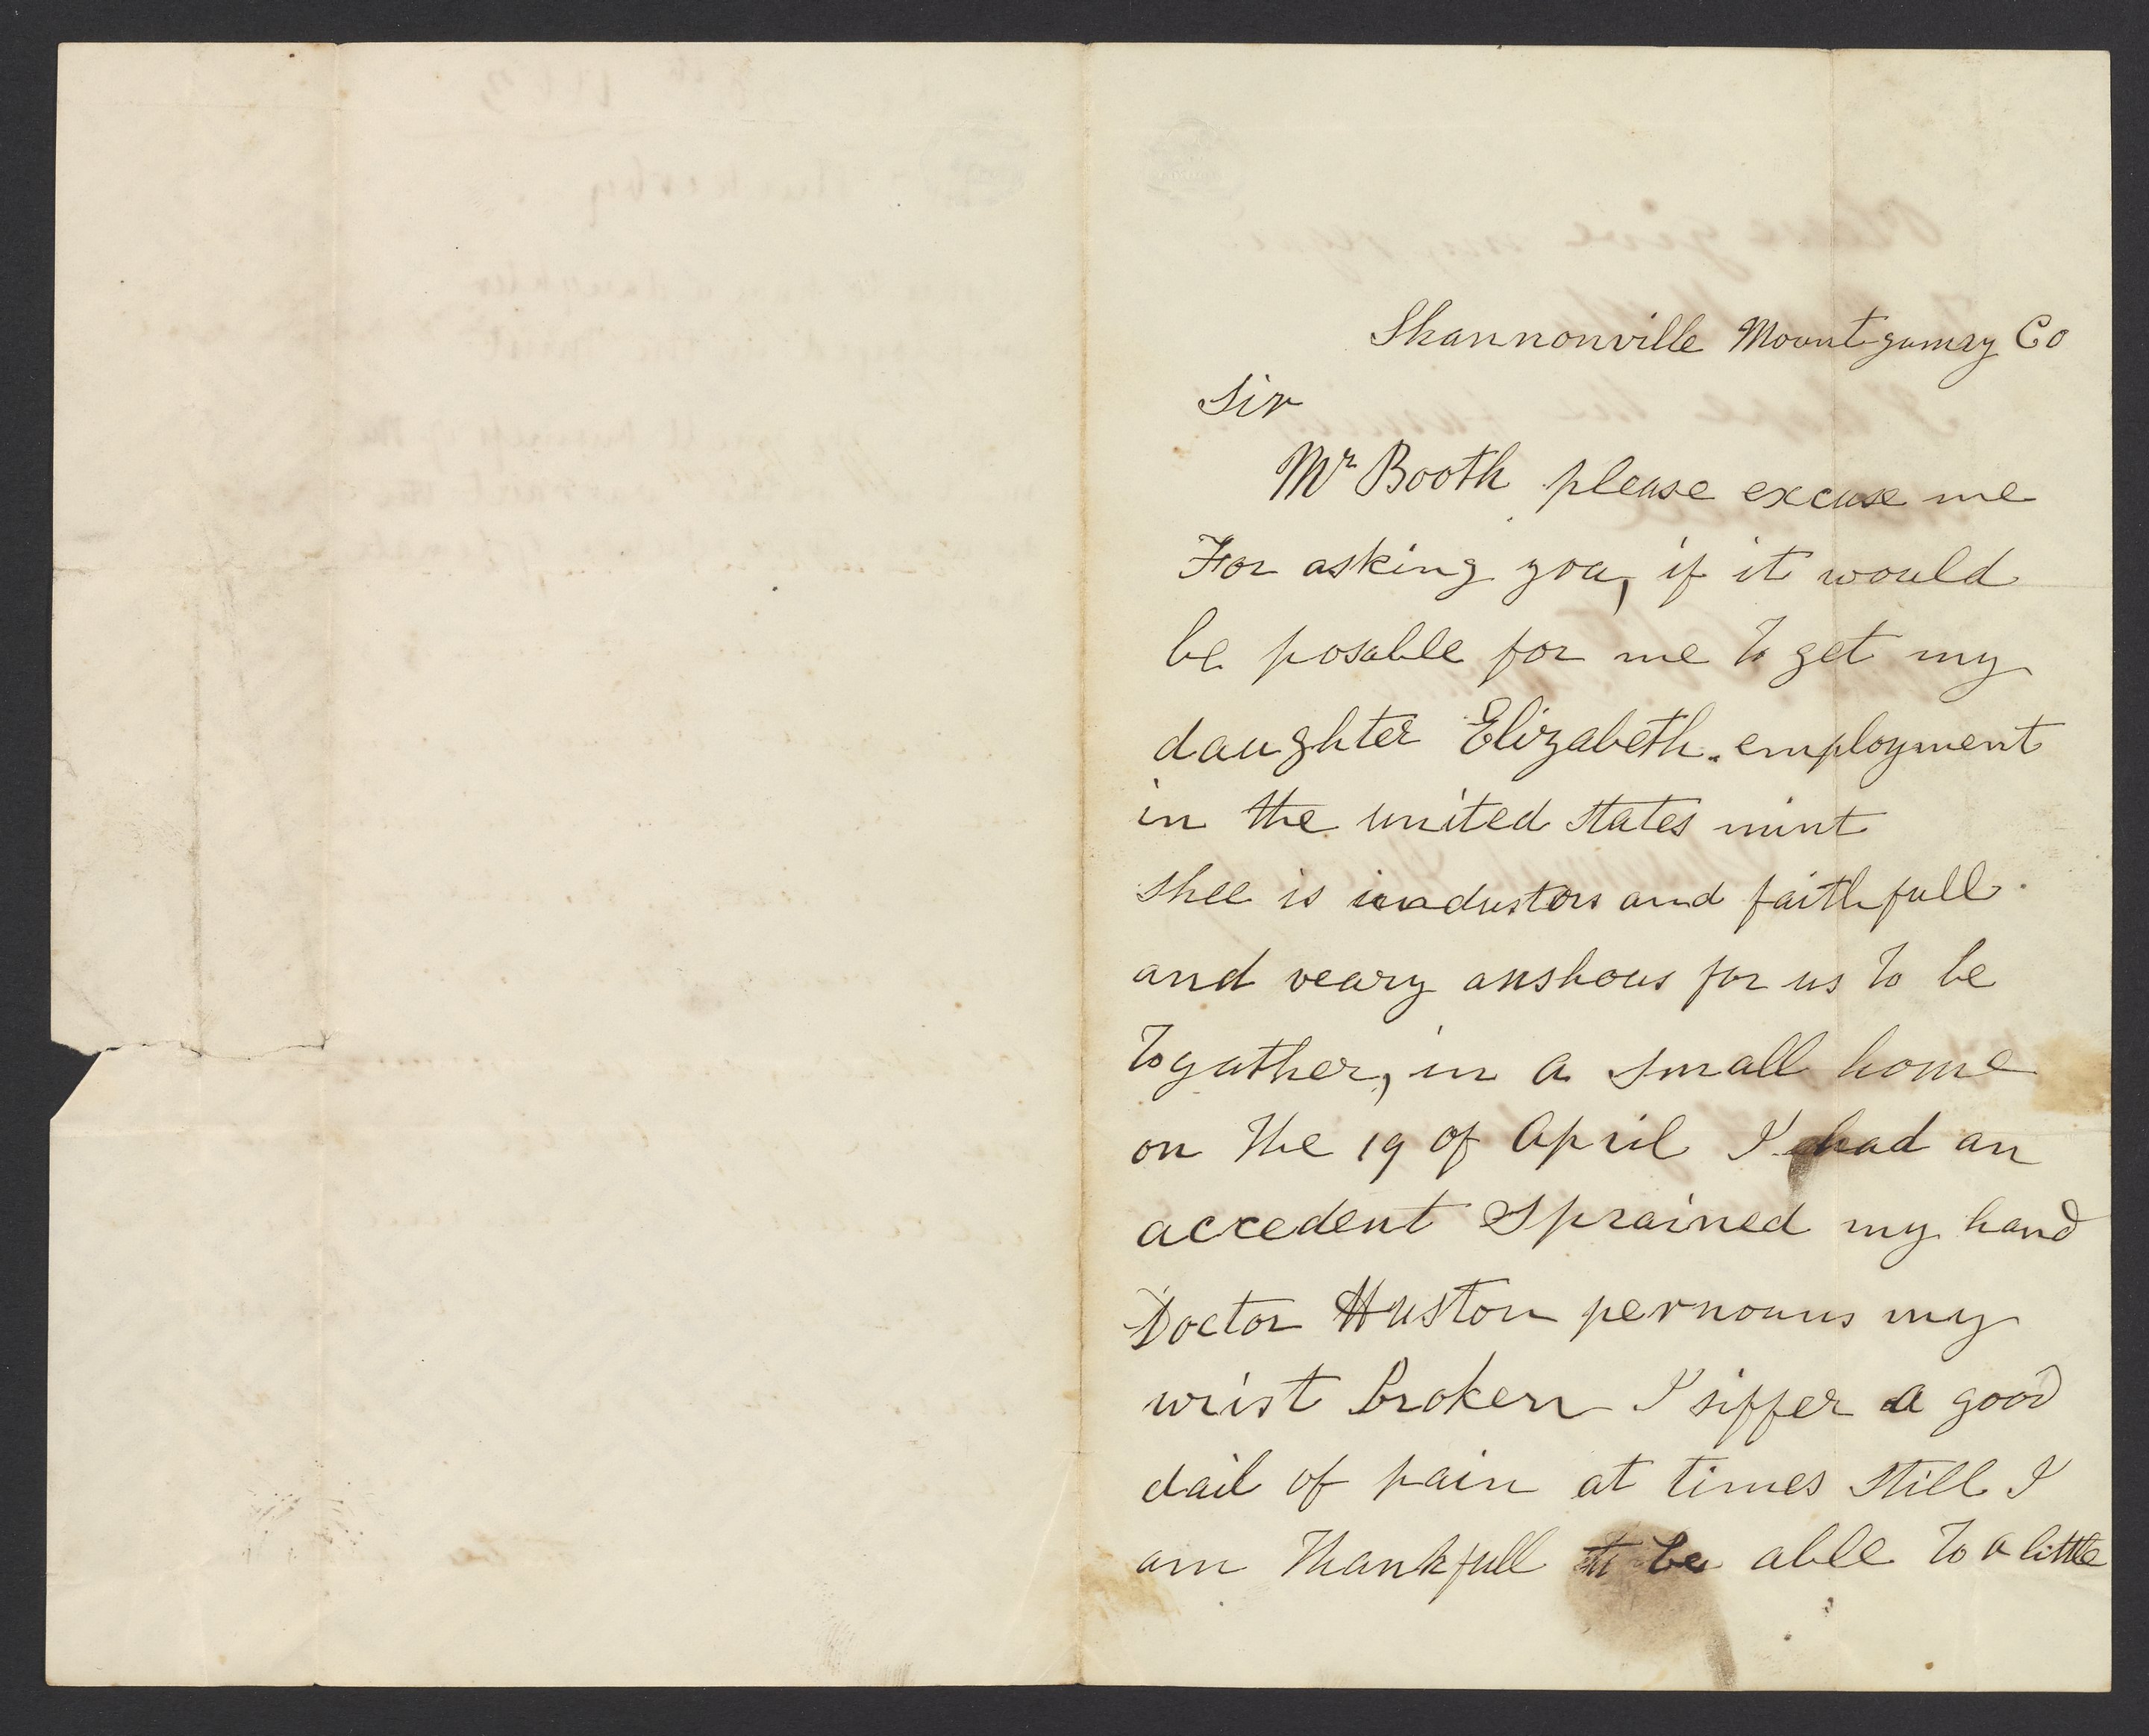 Shannonville Mountgumry Co
Sir
Mr Booth please excuse me
For asking you, if it would
be posable for me to get my
daughter Elizabeth. employment
in the united states mint
shee is industors and faithfull.
and veary anshous for us to be
togather, in a small home
on the 19 of April I had an
accedent sprained my hand
Doctor Huston pernouns my
wrist broken I siffer a good
dail of pain at times still I
am thankfull to be able to a little